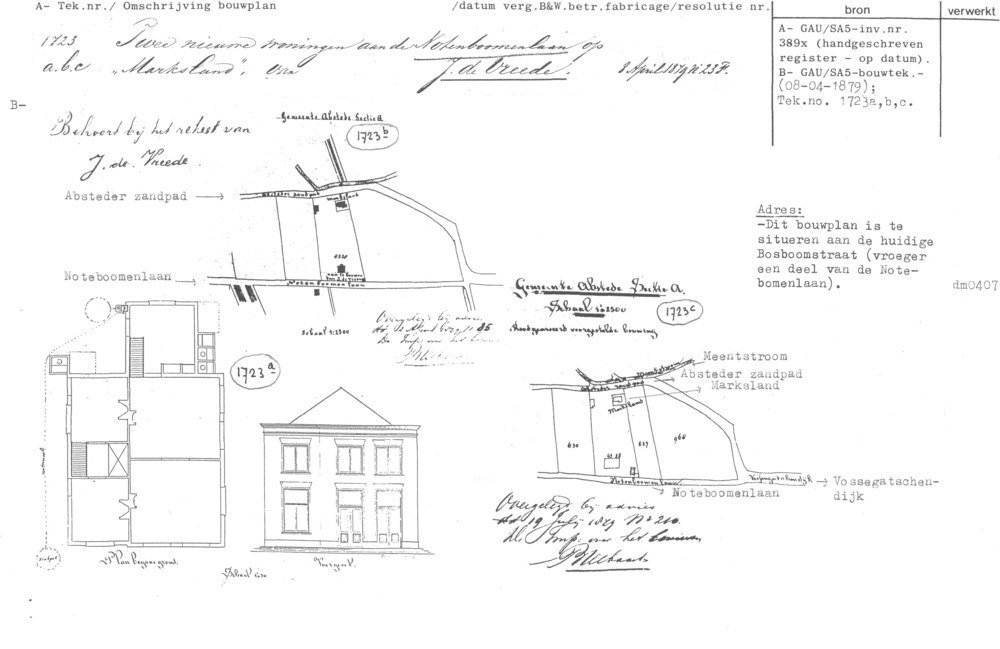 A- Tek.nr./ Omschrijving bouwplan /datum verg.B&W.betr.fabricage/resolutie nr.
bron verwerkt
1723 Twee nieuwe woningen aan de Notenboomenlaan op
a.b.c „Marksland", van J. de Vreede. 8 April 1879
A- GAU/SA5-inv.nr.
389x (handgeschreven
register - op datum).
B- GAU/SA5-bouwtek.-
(08-04-1879);
Tek.no. 1723a,b,c.
B-
Behoort bij het rekest van
J. de Vreede.
Gemeente Abstede Sectie A
1723b
Absteder zandpad
Absteder zandpad
Marksland
Noteboomenlaan
Notenboomenlaan
Schaal 1:2500
Overgelegd bij advies
De Insp. over het
Adres:
-Dit bouwplan is te
situeren aan de huidige
Bosboomstraat (vroeger
een deel van de Note-
bomenlaan).
dm0407
Gemeente Abstede Sectie A.
Schaal 1 à 2500
1723c
Meentstroom
Absteder zandpad
Marksland
Absteder zandpad
Marksland
630
627
968
Notenboomenlaan
Noteboomenlaan
Vossegatschen-
dijk
Overgelegd bij advies
19 July 1879 No 210.
De Insp. over het bouwen
1723a
Plan begane grond.
Schaal
Voorgevel